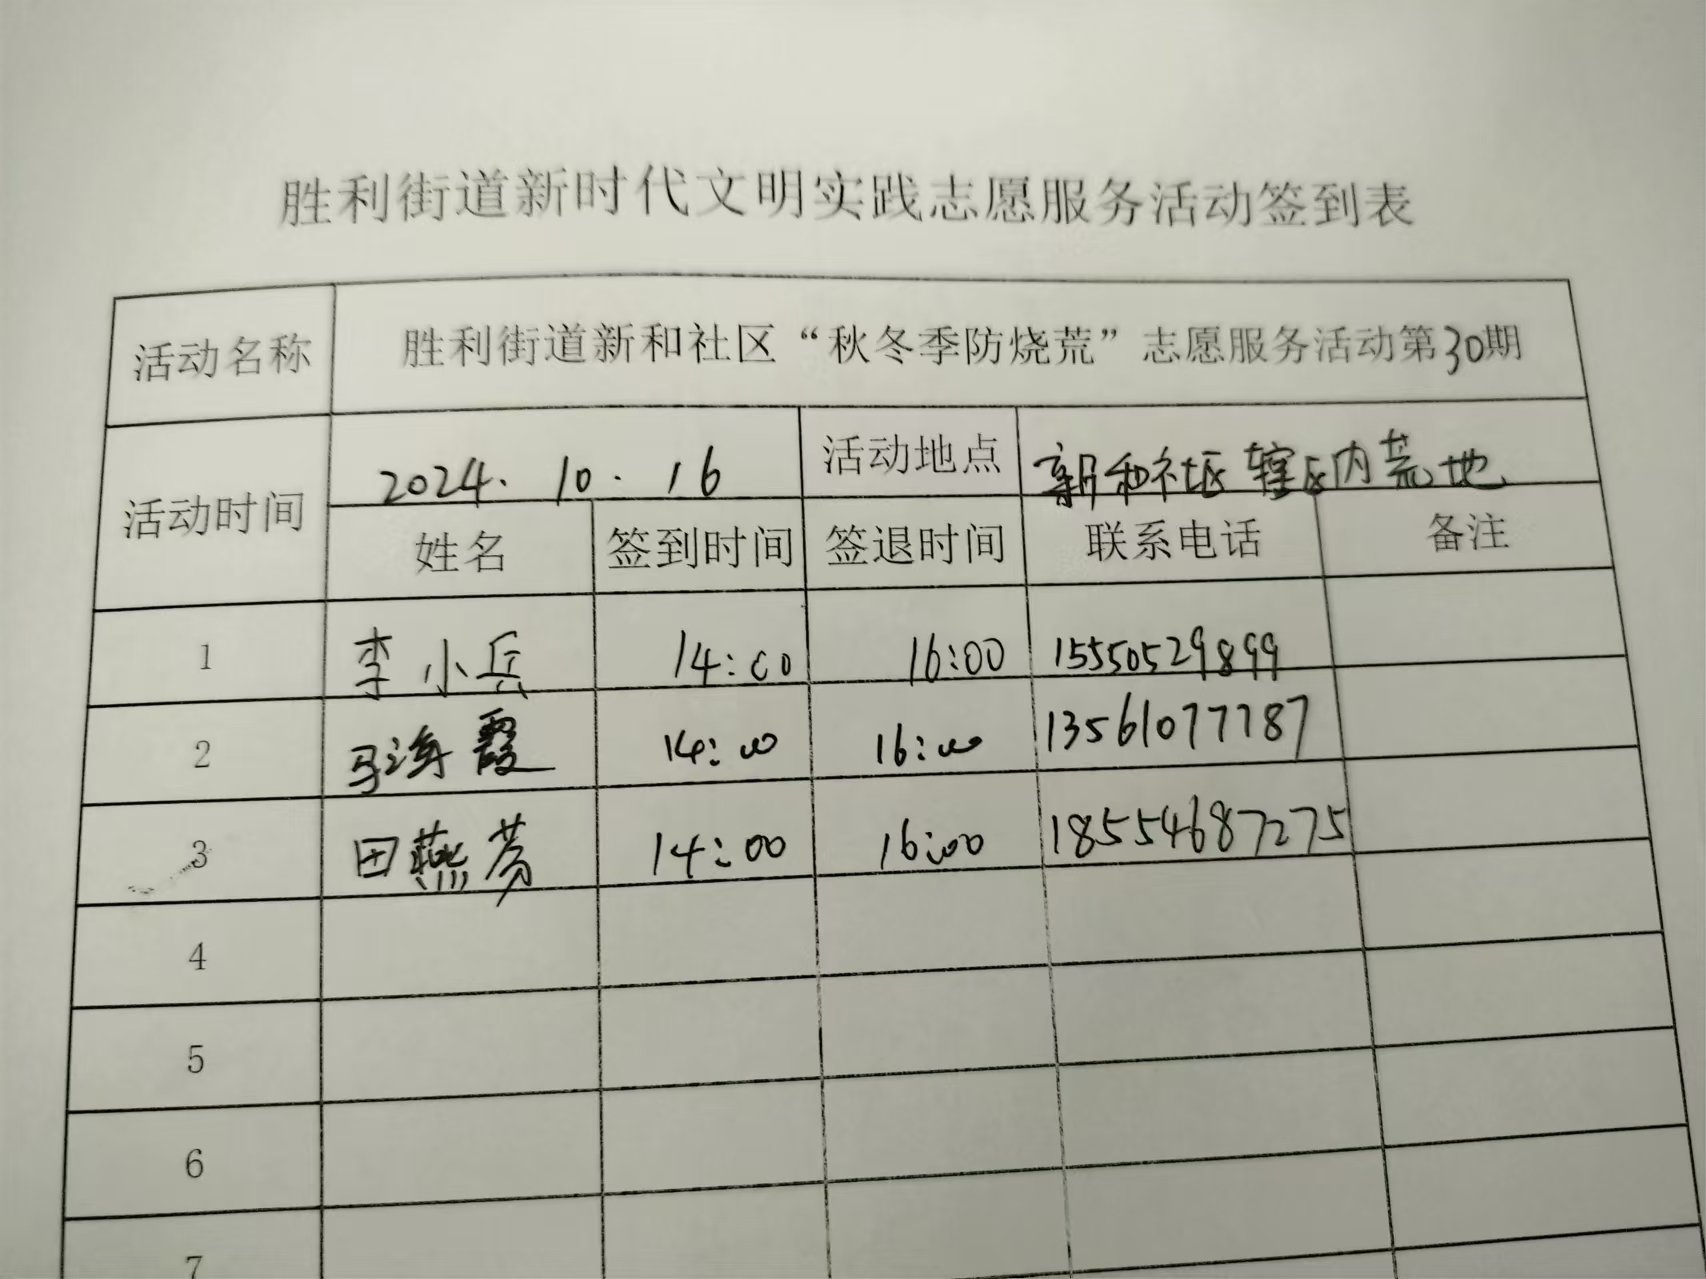 胜利街道新时代文明实践志愿服务活动签到表
活动名称 胜利街道新和社区“秋冬季防烧荒”志愿服务活动第30期
活动时间 2024.10.16 活动地点 新和社区辖区内荒地
姓名 签到时间 签退时间 联系电话 备注
1 李小兵 14:00 16:00 15550529899
2 马海霞 14:00 16:00 13561077187
3 田燕芳 14:00 16:00 18554687275
4
5
6
7